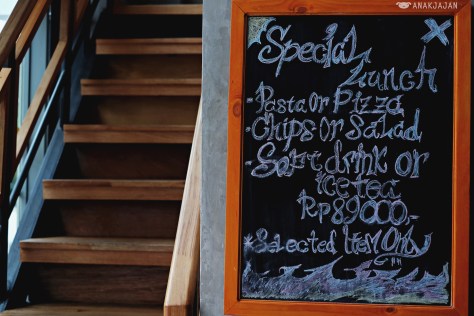 ANAKJAJAN
Special
Lunch
- Pasta or Pizza
- Chips or Salad
- Soft drink or
ice tea
Rp 89000.-
*Selected Item Only